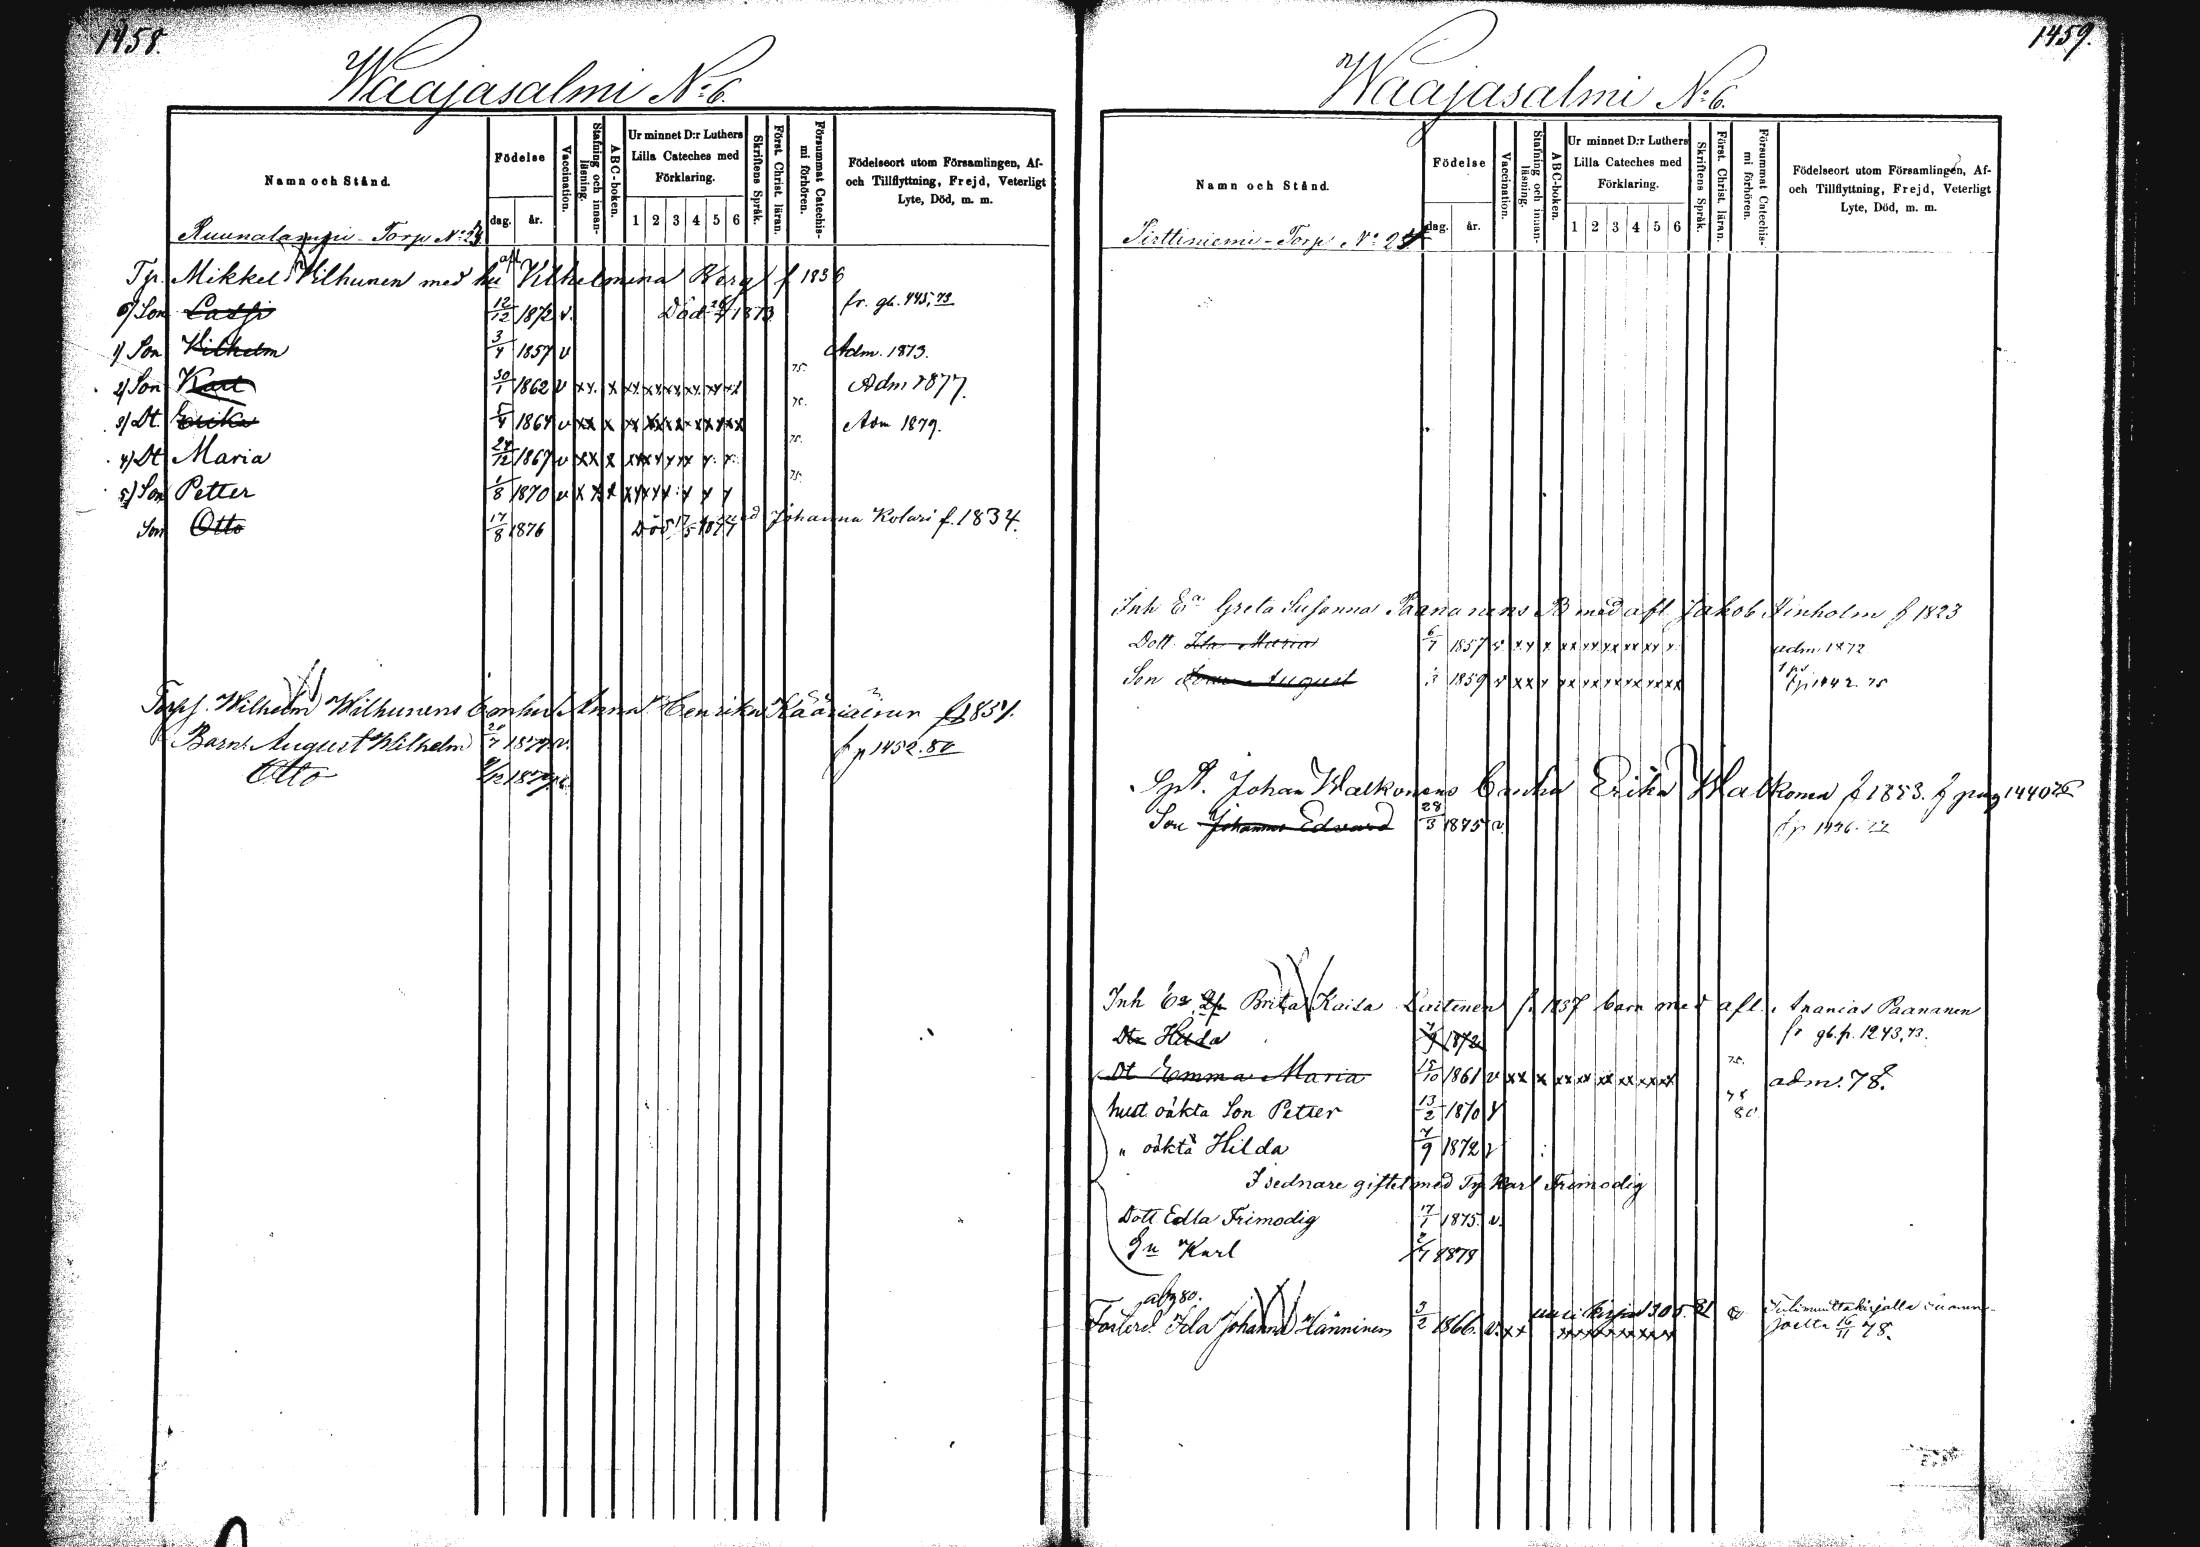 1458.
Waajasalmi No 6.
Namn och Stånd.
Födelse
dag. år.
Vaccination.
Stafning och innan-läsning.
ABC-boken.
Ur minnet D:r Luthers Lilla Cateches med Förklaring.
1 2 3 4 5 6
Skriftens Språk.
Först. Christ. läran.
Försummat Catechis-mi förhören.
Födelseort utom Församlingen, Af- och Tillflyttning, Frejd, Veterligt Lyte, Död, m. m.
Ruunalampi - Torp No
Tp. Mikkel Vilhunen med hu afl Vilhelmina Berg f 1836
6) Son Lassi 12/12 1872 v. Död 1873 fr. gb. 445, 73
1) Son Vilhelm 3/4 1857 v Adm. 1873.
2) Son Karl 30/1 1862 v xx x xx xx xx xx xx xx 75. Adm 1877.
3) Dt. Erika 5/4 1864 v xx x xx xx xx xx xx xx 75. Adm 1879.
4) Dt Maria 24/12 1867 v xx x 75.
5) Son Petter 1/8 1870 v x x x 75.
Son Otto 17/8 1876 Död 17/5 1877 Johanna Kolari f. 1834.
Wilhelm Wilhunens Anna Henrika Kääriäinen f 1857.
Barn: August Wilhelm 1877 v. f p 1452. 80
Otto
1459.
Waajasalmi No 6.
Namn och Stånd.
Födelse
dag. år.
Vaccination.
Stafning och innan-läsning.
ABC-boken.
Ur minnet D:r Luthers Lilla Cateches med Förklaring.
1 2 3 4 5 6
Skriftens Språk.
Först. Christ. läran.
Försummat Catechis-mi förhören.
Födelseort utom Församlingen, Af- och Tillflyttning, Frejd, Veterligt Lyte, Död, m. m.
Sirttiniemi - Torp No
Inh Ea Greta Susanna Paananens B med afl Jakob f 1823
Dott Ida Maria 6/7 1857 v xx x xx xx xx xx xx x adm. 1872
Son August 1859 v xx x xx xx xx xx xx xx 1442. 75
Johan Walkonens Erika Walkonen f 1853. f pag 1440
Son Johannes Edvard 28/3 1875 v. f p 1436.
Inh Ea Brita Kaisa Laitinen f. 1837 barn med afl. Ananias Paananen
Dtr Hilda 7/9 1872 fr gb. p. 1243, 73.
Dt Emma Maria 15/10 1861 v xx x xx xx xx xx xx 75. adm. 78.
oäkta Son Petter 13/2 1870 v 78 80
" oäkta Hilda 7/9 1872 v
I sednare giftet med Tp Karl Frimodig
Dott Edla Frimodig 17/1 1875. v.
Karl 1878
80.
Fosterd. Ida Johanna Hänninen 3/2 1866. v. xx
16/11 78.